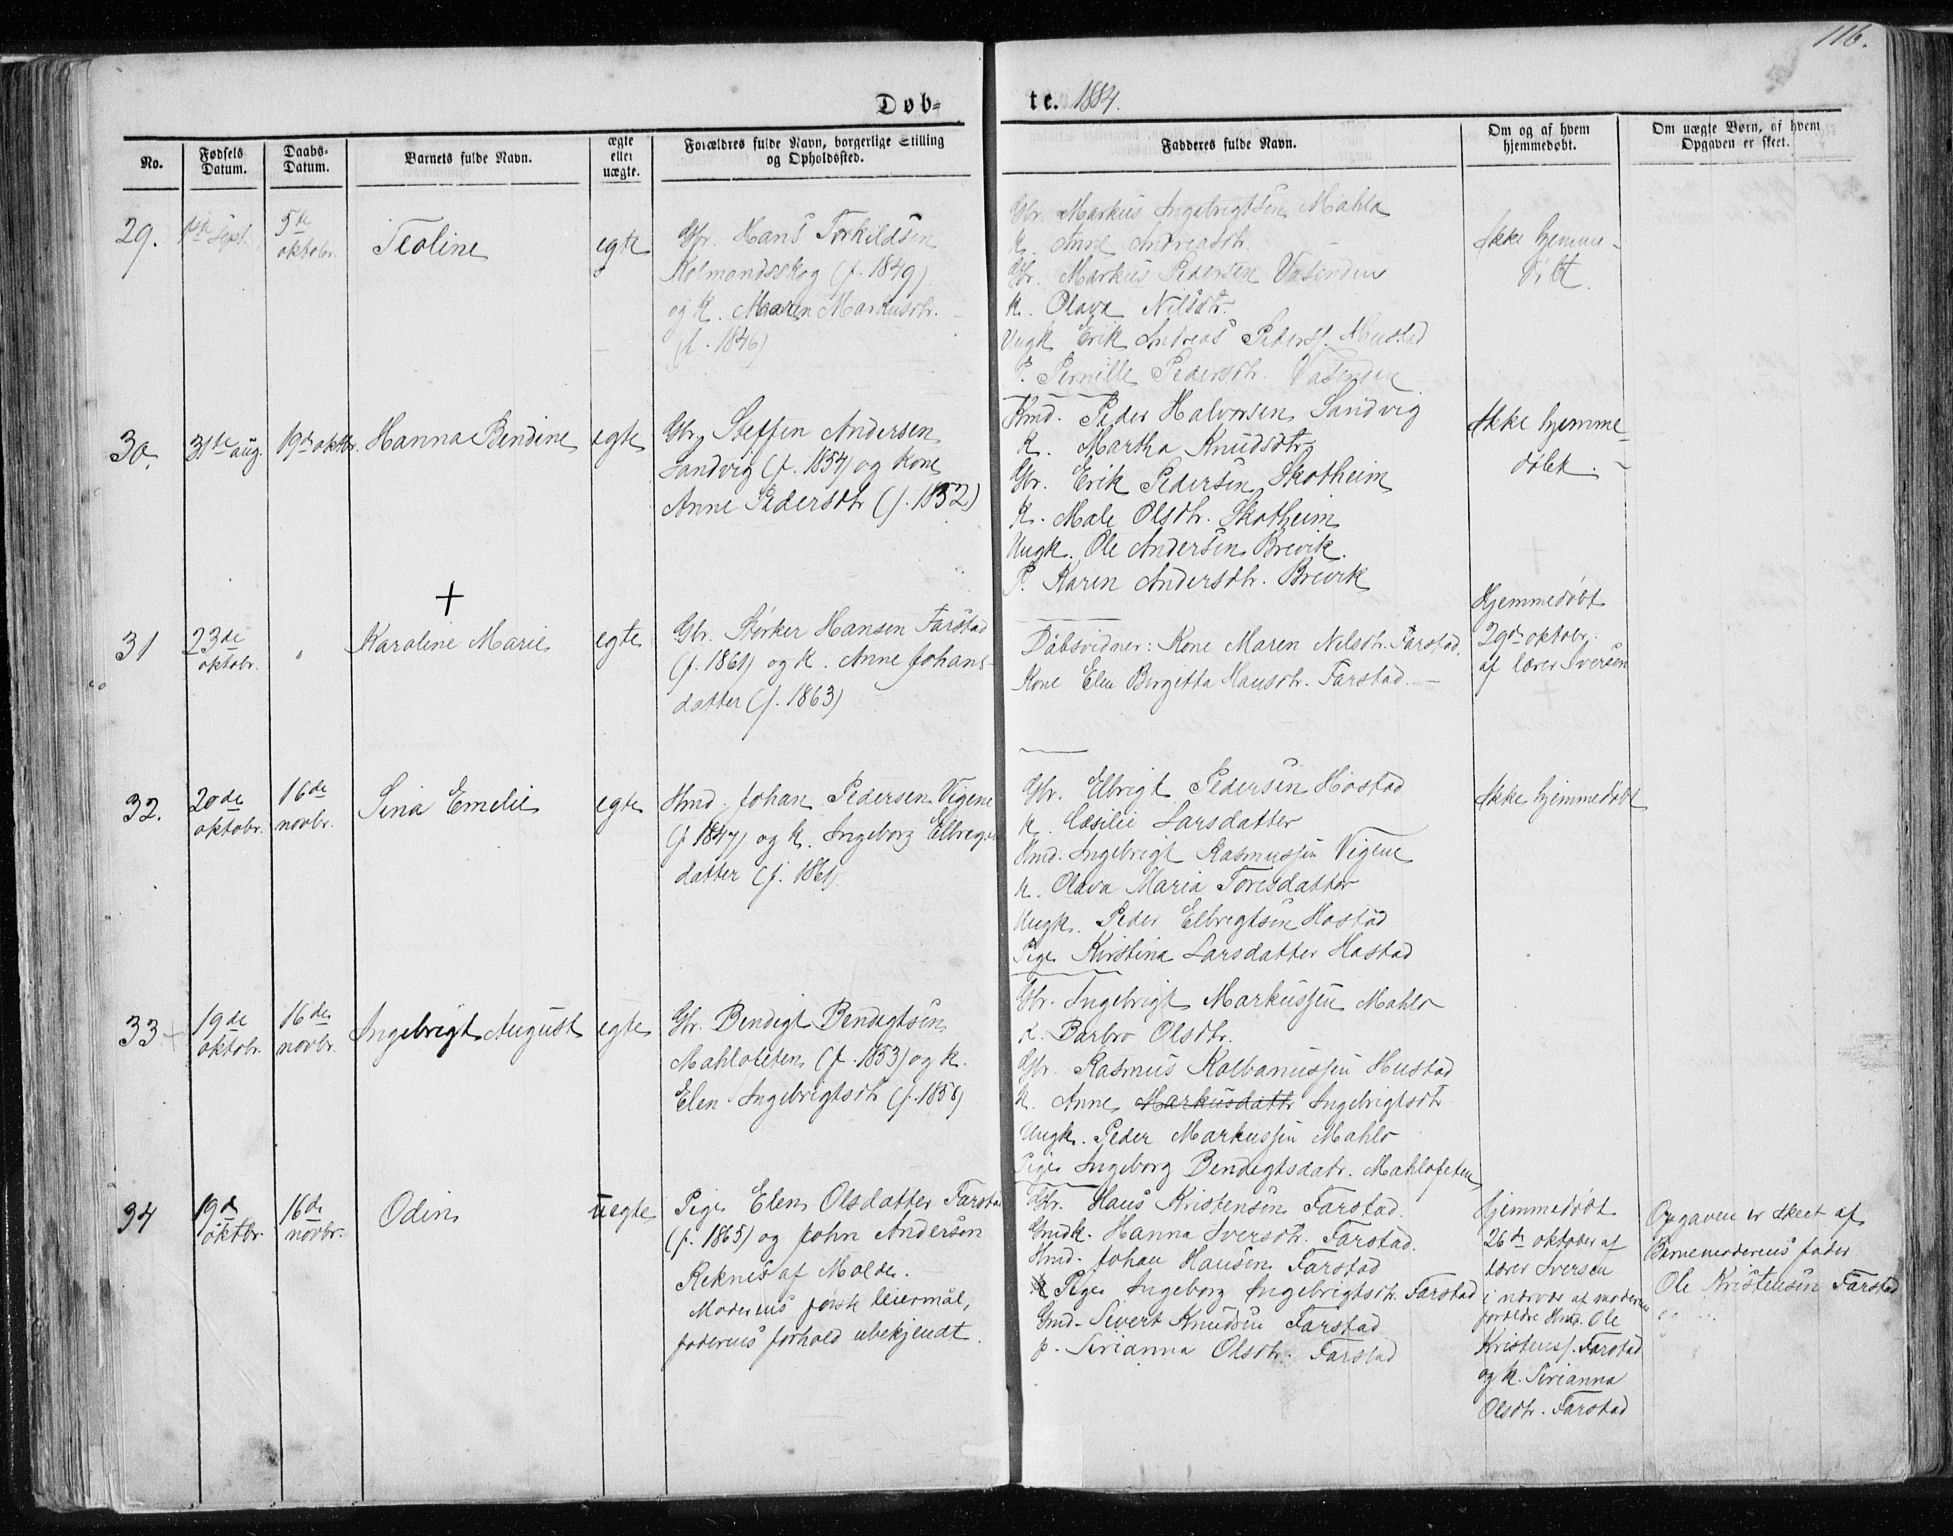 116.
Døb-
te. 1884.
No.
Fødsels
Datum.
Daabs-
Datum.
Barnets fulde Navn.
ægte
eller
uægte.
Forældres fulde Navn, borgerlige Stilling
og Opholdssted.
Fadderes fulde Navn.
Om og af hvem
hjemmedøbt.
Om uægte Børn, af hvem
Opgaven er skeet.
29.
1ste Sept.
5te
oktobr.
Teoline
egte
Gbr. Hans Torkildsen
Kolmandsskog (f. 1849)
og K. Maren Markusdtr.
(f. 1846)
Gbr. Markus Ingebrigtsen Mahlo
K. Anne Andreasdtr.
Gbr. Markus Pedersen Vasenden
K. Olava Nilsdtr.
Ungk Erik Andreas Pedersf. Hustad
P. Pernille Pedersdtr. Vasenden
Ikke hjemme-
døbt.
30.
31te aug.
19de oktbr.
Hanna Bendine
egte
Gbr. Steffen Andersen
Sandvig (f. 1854) og Kone
Anne Pedersdtr (f. 1852)
Hmd. Peder Halvorsen Sandvig
K. Martha Knudsdtr
Gbr. Erik Pedersen Skotheim
K. Male Olsdtr. Skotheim
Ungk. Ole Andersen Brevik.
P. Karen Andersdtr. Brevik
Ikke hjemme-
døbt.
+
31
23de
oktobr.
"
Karoline Marie
egte
Gbr. Størker Hansen Farstad
(f. 1861) og K. Anne Johans-
datter (f. 1863)
Dåbsvidner: Kone Maren Nilsdtr. Farstad.
Kone Elen Birgitta Hansdtr. Farstad.
Hjemmedøbt
29de oktobr.
af lærer Iversen
32.
20de
oktobr.
16de
novbr.
Sina Emelie
egte
Hmd. Johan Pedersen Vigene
(f 1847) og K. Ingeborg Elbregts
datter (f. 1861)
Gbr. Elbrigt Pedersen Hostad
K. Cæsilie Larsdatter
Hmd. Ingebrigt Rasmussen Vigene
K. Olava Maria Toresdatter
Ungk. Peder Elbregtsen Hostad
Pige Kirstina Larsdatter Hostad
Ikke hjemmedøbt
33
19de
oktobr.
16de
novbr.
Ingebrigt August
egte
Gbr. Bendigt Bendigtsen
Mahlofeten (f. 1853) og K.
Elen Ingebrigtsdtr (f. 1858)
Gbr. Ingebrigt Markussen Mahlo
K. Barbro Olsdtr.
Gbr. Rasmus Kolbanussen Hustad
K. Anne Markusdatt Ingebrigtsdtr
Ungk. Peder Markussen Mahlo
Pige Ingeborg Bendigtsdatr. Mahlofeten
34
19de
oktbr.
16de
novbr.
Odin
uegte
Pige Elen Olsdatter Farstad
(f. 1863) og John Andersen
Reknes af Molde.
Moderens første leiermål,
faderens forhold ubekjendt.
Gbr. Hans Kristensen Farstad.
Gmdk. Hanna Iversdtr. Farstad.
Hmd. Johan Hansen Farstad
Pige Ingeborg Ingebrigtsdtr. Farstad
Gmd. Sivert Knudsen Farstad
p. Sirianna Olsdtr. Farstad
Hjemmedøbt
26de oktober af
lærer Iversen
i nærvær af moderens
foreldre Hmd. Ole
Kristensf. Farstad
og K. Sirianna
Olsdtr. Farstad
Opgaven er skeet af
Barnemoderens fader
Ole Kristensen Farstad